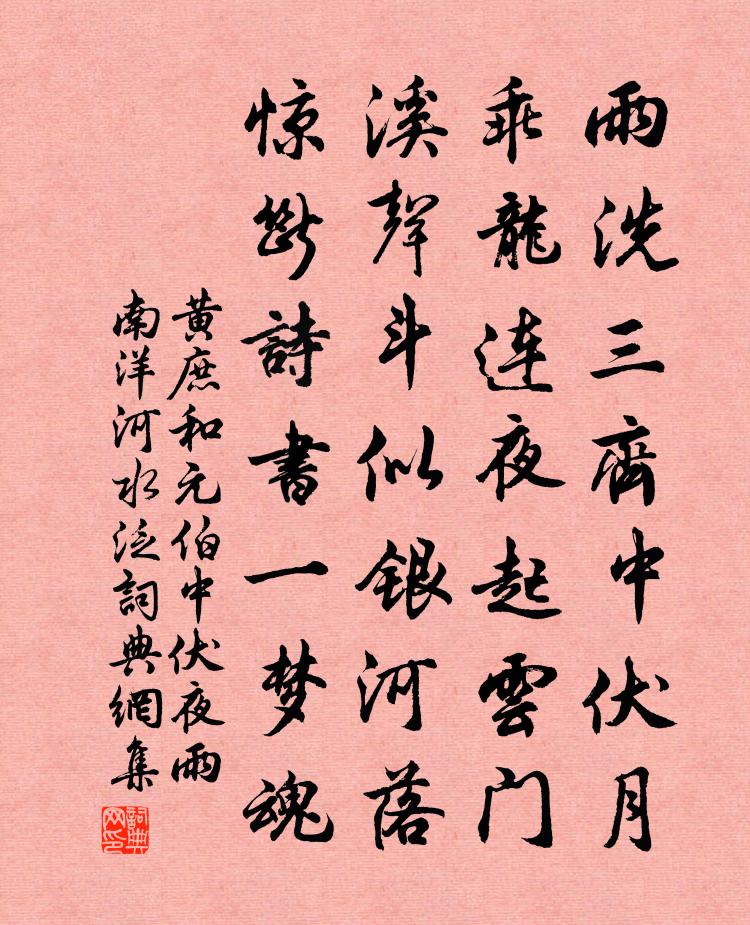 雨洗三齊中伏月
乖龍连夜起雲门
溪聲斗似銀河落
惊斷詩書一梦魂
黄庶和元伯中伏夜雨
南洋河水泛詞典網集
詞典网印